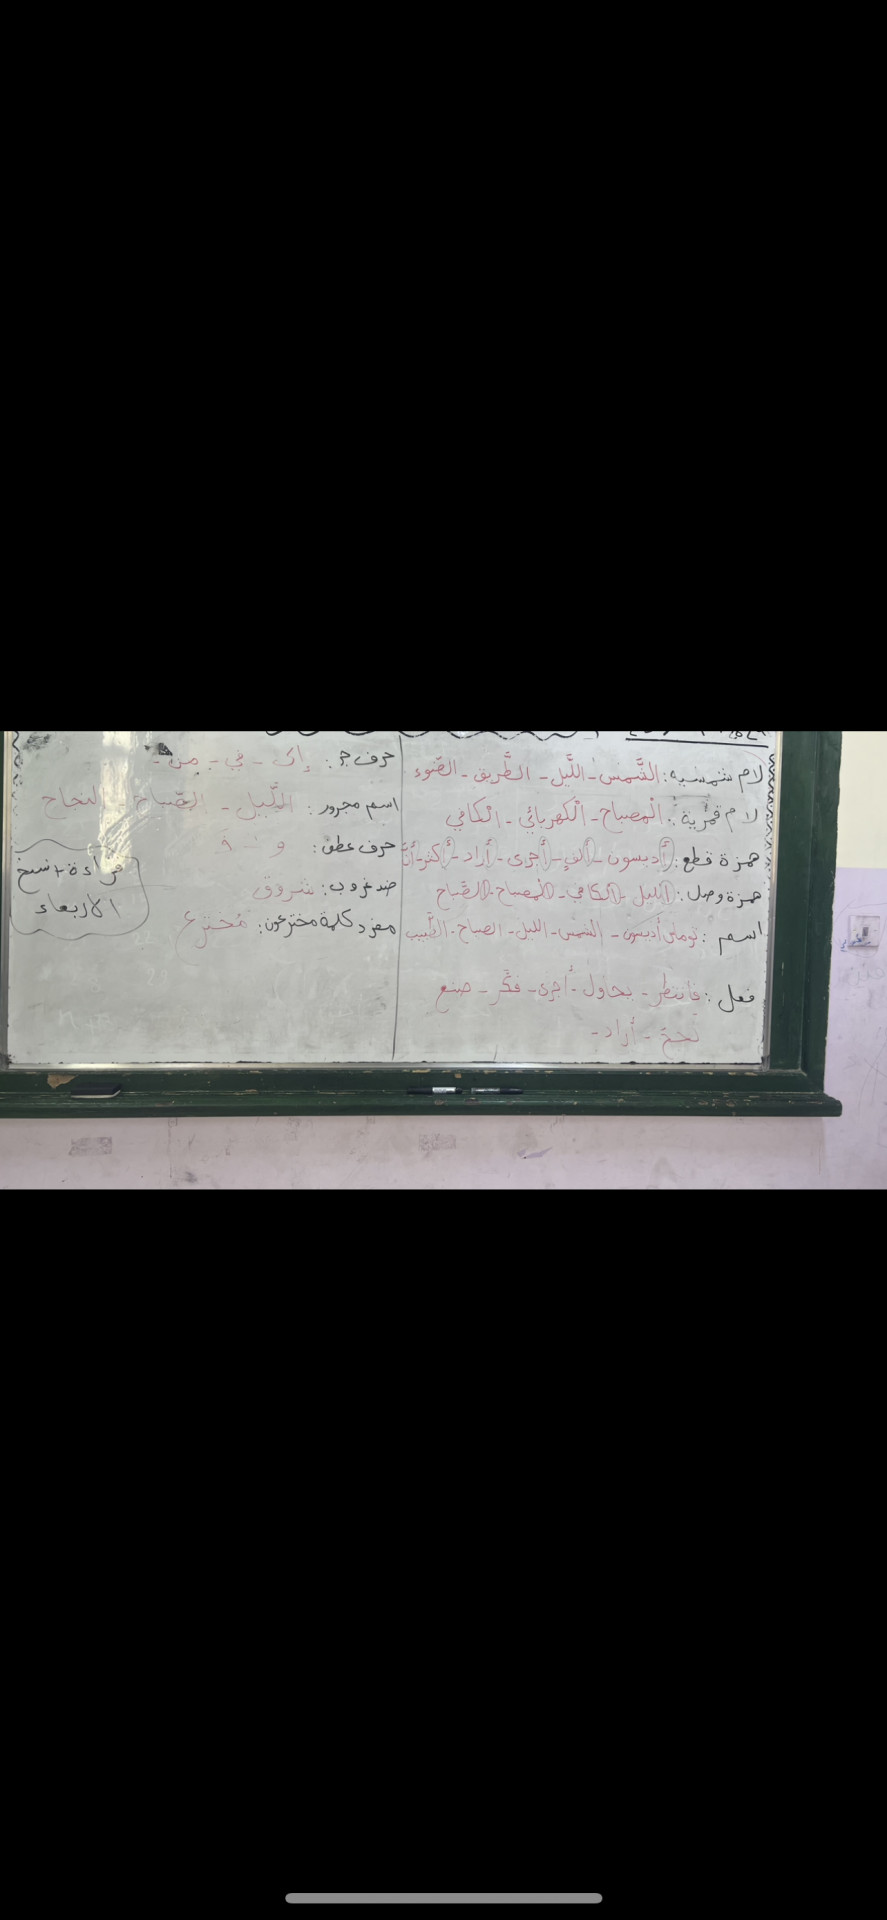 لام شمسية: الشَّمس - اللَّيل - الطَّريق - الضّوء
لام قمرية: الْمصباح - الْكهربائي - الْكافي
همزة قطع: أديسون - ألف - أجرى - أراد - أكثر - أنَّ
همزة وصل: الليل - الكافي - المصباح - الصَّباح
اسم: توماس أديسون - الشمس - الليل - الصباح - الطَّبيب
فعل: فانتظر - يحاول - أجرى - فكَّر - صنع
نجح - أراد -
حرف جر: إلى - في - من -
اسم مجرور: اللَّيل - الصَّباح - النجاح
حرف عطف: و - فَ
ضد غروب: شروق
مفرد كلمة مخترعون: مُخترع
قراءة + نسخ
الأربعاء